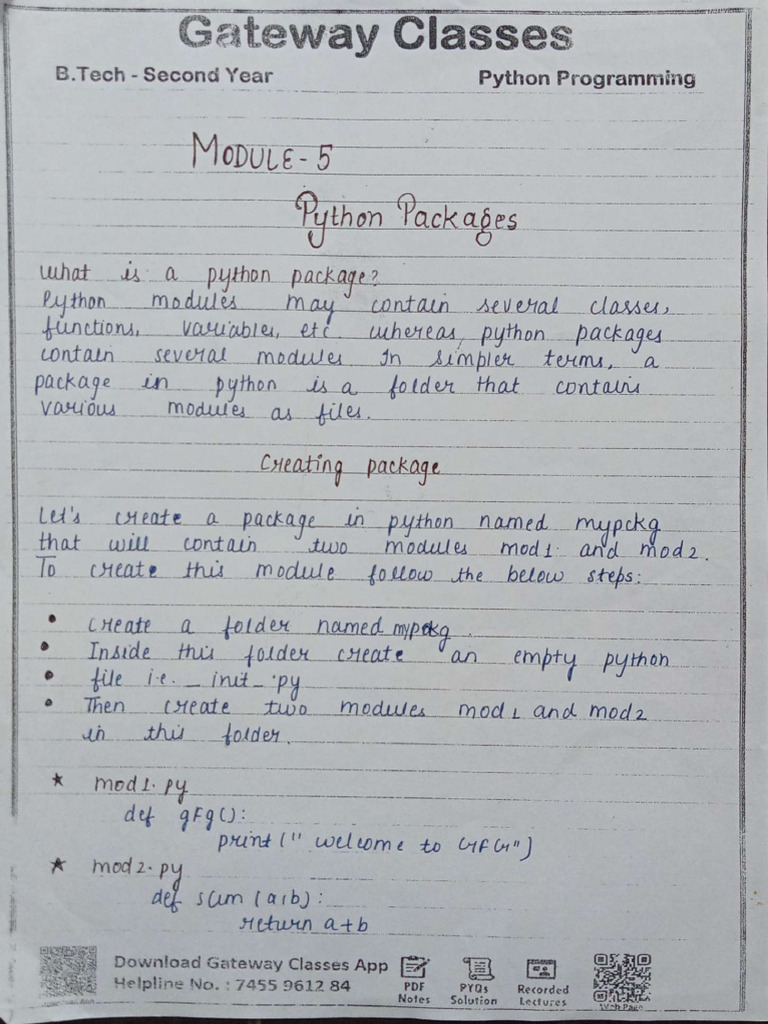 Gateway Classes
B.Tech - Second Year Python Programming
MODULE - 5
Python Packages
What is a python package?
Python modules may contain several classes,
functions, variables, etc whereas, python packages
contain several modules In simpler terms, a
package in python is a folder that contains
various modules as files.
Creating package
Let's create a package in python named mypckg
that will contain two modules mod1 and mod2.
To create this module follow the below steps:
• Create a folder named mypckg.
• Inside this folder create an empty python
• file i.e. _ init _ .py
• Then create two modules mod1 and mod2
in this folder.
★ mod1.py
def gfg():
print(" welcome to GFG")
★ mod2.py
def sum (a,b):
return a+b
Download Gateway Classes App
Helpline No. : 7455 9612 84
PDF Notes
PYQs Solution
Recorded Lectures
Web Page